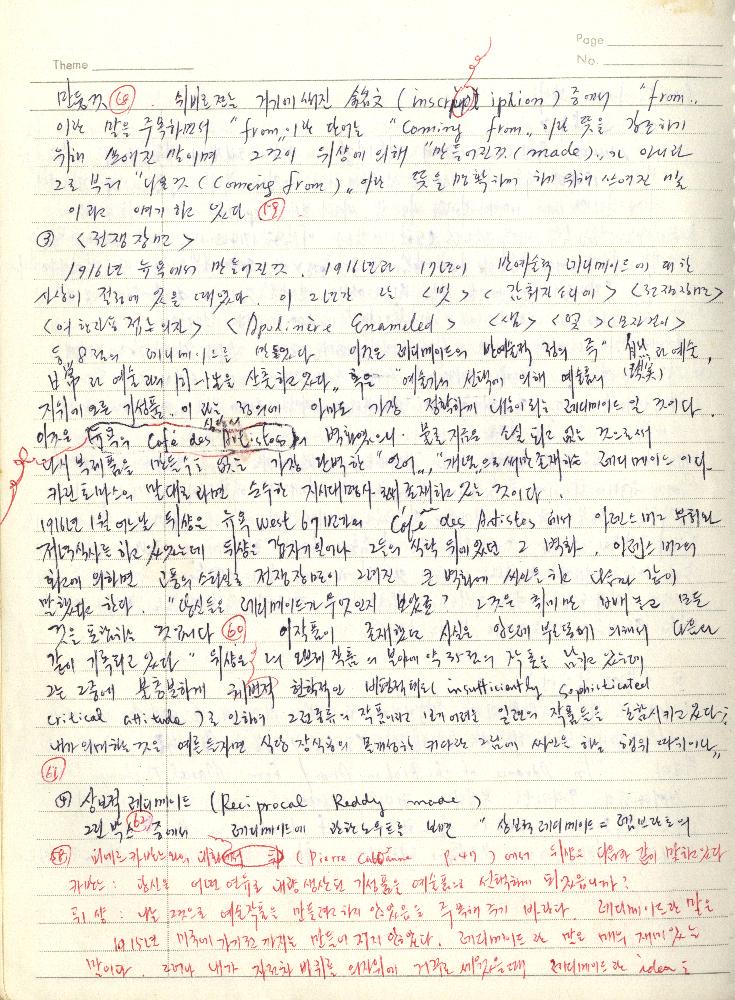 Page
Theme
No.
만든것 (58). 쉬바르쯔는 거기에 새겨진 銘文 (inscription) 중에서 "from"
이란 말을 주목하면서 "from"이란 단어는 "Coming from"이란 뜻을 강조하기
위해 쓰여진 말이며 그것이 뒤샹에 의해 "만들어진것 (made)"가 아니라
그로 부터 "나온것 (Coming from)"이란 뜻을 명확하게 하기 위해 쓰여진 말
이라고 얘기 하고 있다 (59)
③ <전쟁장면>
1916년 뉴욕에서 만들어진것. 1916년과 17년이 반예술적 레디메이드에 대한
사상이 절정에 있을 때였다. 이 2년간 그는 <빗> < 감춰진 소리에> <전쟁장면>
<여행자용 접는의자> <Apolinère Enameled> <샘> <덫> <모자걸이>
등 8점의 레디메이드를 만들었다 이것은 레디메이드의 반예술적 정의 즉
日常과 예술과의 을 산뜻하고 있다" 혹은 "예술가의 선택에 의해 예술품의
지위에 오른 기성품"이라는 정의에 아마도 가장 정확하게 대응되는 레디메이드 일 것이다.
이것은 뉴욕의 Café des Artistes의 벽화였으나 불로 지금은 소실 되고 없는 것으로써
다시 복제품을 만들수도 없는 가장 완벽한 "언어", "개념"으로서만 존재하는 레디메이드 이다.
카린 토마스의 말대로라면 순수한 지시대명사로써 존재하고 있는 것이다.
1916년 1월 어느날 뒤샹은 뉴욕 West 67번가의 Café des Artistes 에서 아렌스버그 부처와
저녁식사를 하고 있었는데 뒤샹은 갑자기 일어나 그들의 식탁 뒤에 있던 그 벽화, 아렌스버그의
회고에 의하면 고풍의 스타일로 전쟁장면이 그려진 큰 벽화에 싸인을 하고 다음과 같이
말했다고 한다. "당신들은 레디메이드가 무엇인지 보았죠? 그것은 죽이면 모든
것을 포함하는 것이다 (60) 이작품이 존재했다는 사실은 앙드레 부르통에 의해서 다음과
같이 기록되고 있다 " 뒤샹은 의 작품의 분야에 약 점의 작품을 남기고 있는데
그는 그중에 불충분하게 현학적인 비평적태도 (insufficiently sophisticated
critical attitude)로 인하여 그런종류의 작품이라고 하기 어려운 일련의 작품들을 포함시키고 있다;
내가 의미하는 것은 예를 들자면 식당 장식용의 몰개성한 커다란 그림에 싸인을 하는 행위 따위이다"
(61)
④ 상보적 레디메이드 (Reciprocal Reddy made)
그린 박스 (62) 중에서 레디메이드에 관한 노우트를 보면 " 상보적 레디메이드 = 렘브란트의
(58) 피에르 카반느와의 대화 (Pierre Cabanne P.47) 에서 뒤샹은 다음과 같이 말하고 있다
카반느 : 당신은 어떤 연유로 대량생산된 기성품을 예술품으로 선택하게 되었읍니까?
뒤샹 : 나는 그것으로 예술작품을 만들려고 하지 않았음을 주목해 주기 바란다. 레디메이드란 말은
1915년 미국에 가기전 까지는 만들어 지지 않았었다. 레디메이드 란 말은 매우 재미있는
말이다. 그러나 내가 자전차 바퀴를 의자위에 거꾸로 세웠을때 레디메이드란 idea는